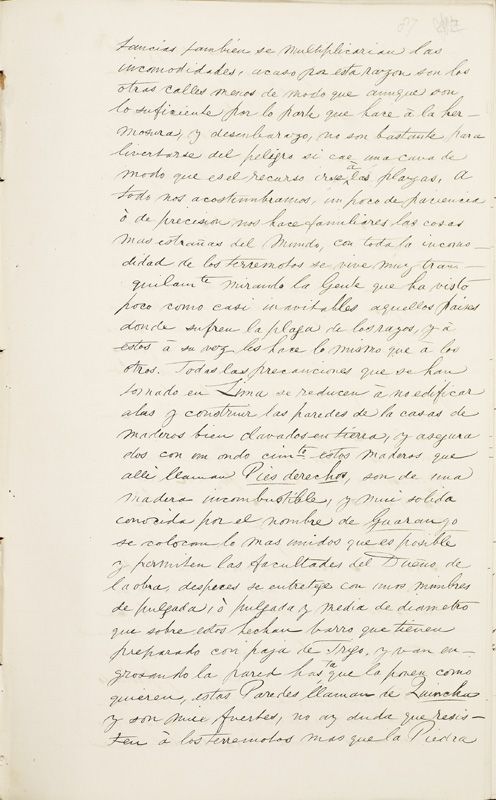 87
tancias tambien se multiplicarian las
incomodidades, acaso por esta razon son las
otras calles menos de modo que aunque son
lo suficiente por lo parte que hace à la her-
mosura, y desembarazo, no son bastante para
livertarse del peligro si cae una casa de
modo que es el recurso irse à las playas. A
todo nos acostumbramos, un poco de paciencia
ò de precision nos hace familiares las cosas
mas estrañas del Mundo, con toda la incomo-
didad de los terremotos se vive muy tran-
quilamte mirando la Gente que ha visto
poco como casi inavitables aquellos Paises
donde sufren la plaga de los rayos, y à
estos à su vez les hace lo mismo que à los
otros. Todas las precauciones que se han
tomado en Lima se reducen à no edificar
altas y construir las paredes de la casas de
maderos bien clavados en tierra, y asegura
dos con un ondo cimto estos maderos que
alli llaman Pies derechos, son de una
madera incombustible, y mui solida
conocida por el nombre de Guarango
se colocan lo mas unidos que es posible
y permiten las facultades del Dueño de
la obra, despues se entretege con unos mimbres
de pulgada, ò pulgada y media de diametro
que sobre estos hechan barro que tienen
preparado con paja de Trigo, y van en-
grosando la pared hasta que la ponen como
quieren, estas Paredes llaman de Quincha
y son mui fuertes, no ay duda que resis-
ten à los terremotos mas que la Piedra